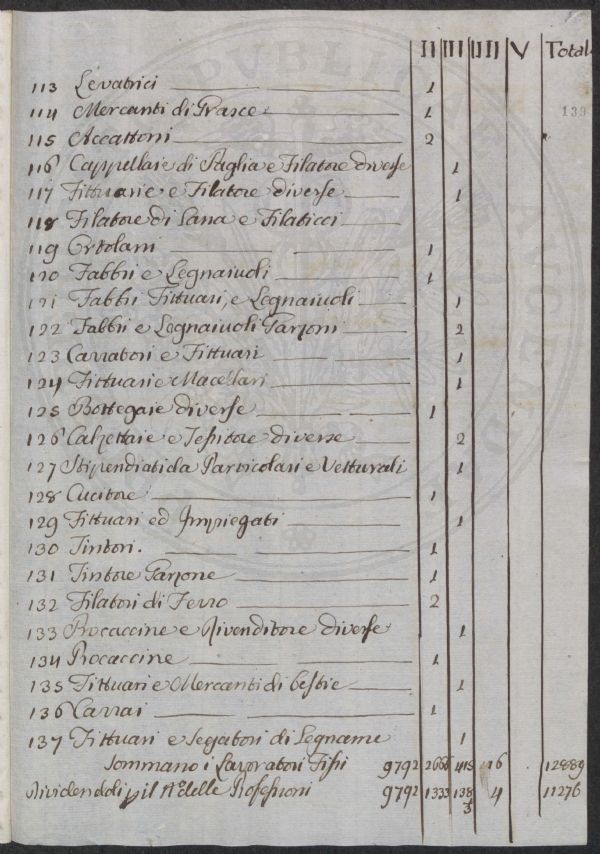 II III IIII V Total.
113 Levatrici 1
114 Mercanti di Grasce 1
139
115 Accattoni 2
116 Cappellaie di Paglia e Filatore diverse 1
117 Fittuarie e Filatore diverse 1
118 Filatore di Lana e Filaticci
119 Ortolani 1
120 Fabbri e Legnaiuoli 1
121 Fabbri Fittuari, e Legnaiuoli 1
122 Fabbri e Legnaiuoli Garzoni 2
123 Carratori e Fittuari 1
124 Fittuari e Macellari 1
125 Bottegaie diverse 1
126 Calzettaie e Tessitore diverse 2
127 Stipendiati da Particolari e Vetturali 1
128 Cucitore 1
129 Fittuari ed Impiegati 1
130 Tintori. 1
131 Tintore Garzone 1
132 Filatori di Ferro 2
133 Procaccine e Rivenditore diverse 1
134 Procaccine 1
135 Fittuari e Mercanti di bestie 1
136 Carrai 1
137 Fittuari e Segatori di Legname 1
Sommano i Lavoratori Fissi 9792 2666 415 16 12889
Dividendoli p il N.o delle Professioni 9792 1333 138 4 11276
3